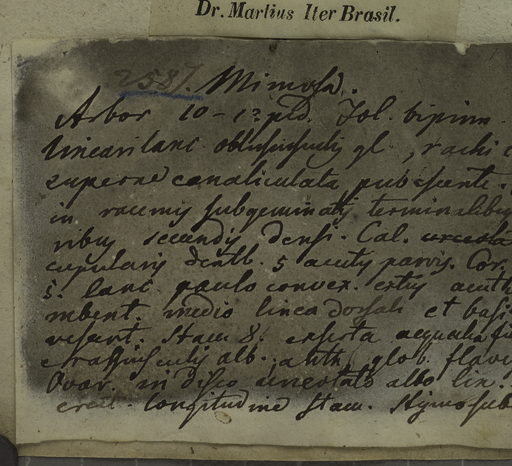 Dr. Martius Iter Brasil.
2587. Mimosa.
Arbor 10-12 ped. Fol. bipinn.
lineari lanc. obtusiusculis gl., rachi
superne canaliculata pubescente.
in racemis subgeminatis terminalibus
ribus secundis densi. Cal. urceola
cupularis dentb. 5 acutis parvis. Cor.
5. lanc. paulo convex. extus acutis
mbent. medio linea dorsali et basi
vesart. Stam 8. exserta aequalia
crassiusculis alb., anth. glob. flavis
Ovar. in disco urceolato albo lin.
erect. longitudine stam. Stigmo sub